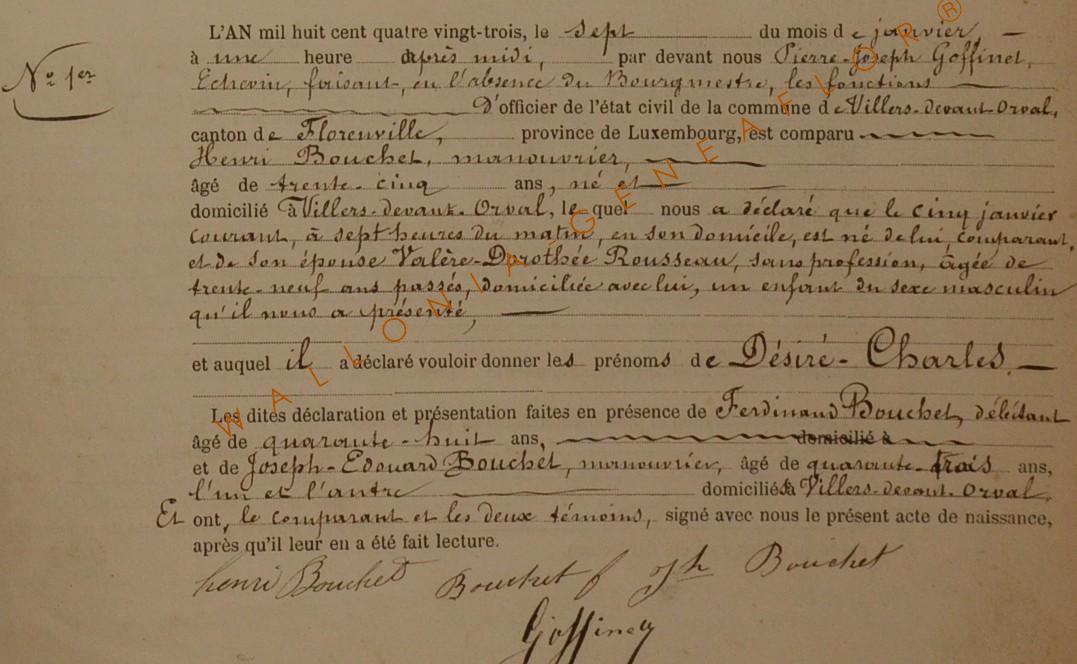 L'AN mil huit cent quatre vingt-trois, le sept du mois de janvier,
N° 1er
à une heure après midi, par devant nous Pierre-Joseph Goffinet,
Echevin, faisant, en l'absence du Bourgmestre, les fonctions
D'officier de l'état civil de la commune de Villers-devant-Orval,
canton de Florenville, province de Luxembourg, est comparu
Henri Bouchet, manouvrier,
âgé de trente-cinq ans, né et
domicilié à Villers-devant-Orval, lequel nous a déclaré que le cinq janvier
courant, à sept heures du matin, en son domicile, est né de lui, comparant,
et de son épouse Valère-Dorothée Rousseau, sans profession, âgée de
trente-neuf ans passés, domiciliée avec lui, un enfant du sexe masculin
qu'il nous a présenté,
et auquel il a déclaré vouloir donner les prénoms de Désiré-Charles.
Les dites déclaration et présentation faites en présence de Ferdinand Bouchet, déléctant
âgé de quarante-huit ans, domicilié à
et de Joseph-Edouard Bouchet, manouvrier, âgé de quarante-trois ans,
l'un et l'autre domiciliés à Villers-devant-Orval.
Et ont, le comparant et les deux témoins, signé avec nous le présent acte de naissance,
après qu'il leur en a été fait lecture.
henri Bouchet Bouchet f jph Bouchet
Goffinet
WALLONIA-GENEAFLOR®